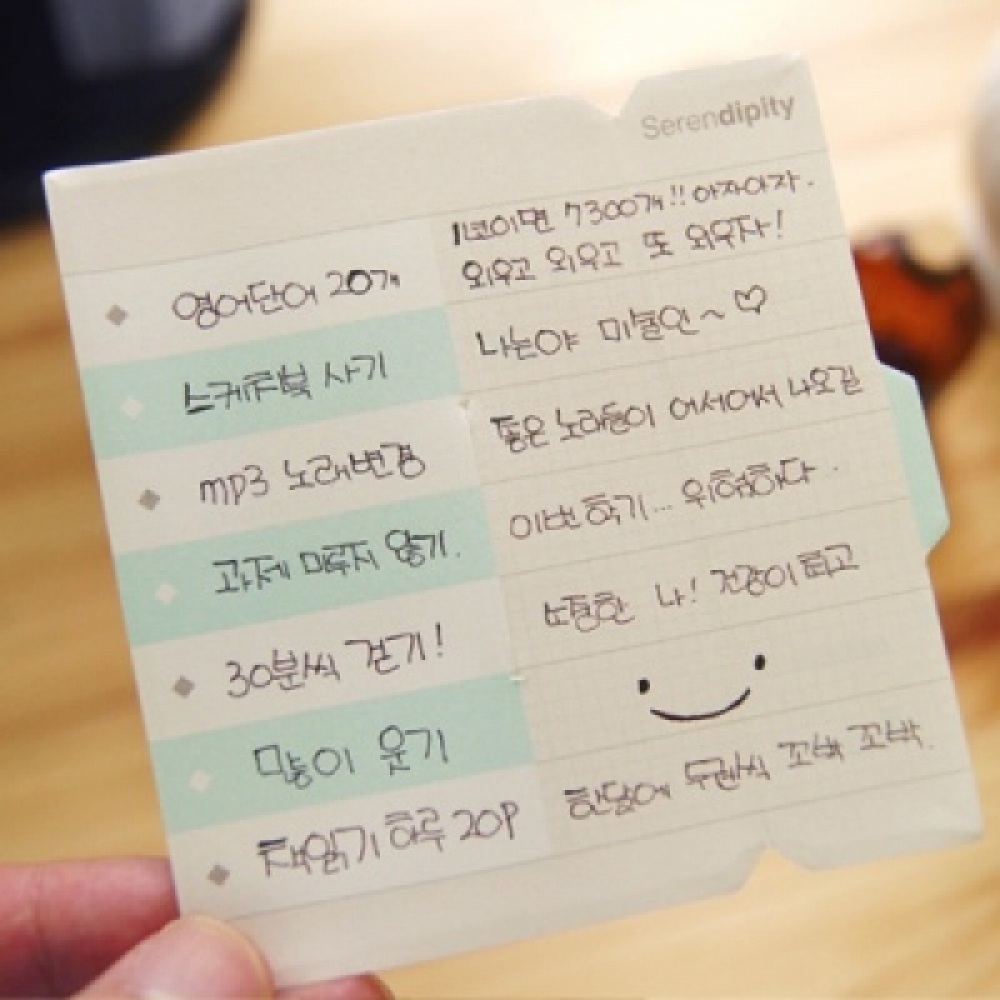 Serendipity
영어단어 20개
1년이면 7300개!! 아자아자.
외우고 외우고 또 외우자!
스케쥬북 사기
나는야 미술인~ ♡
mp3 노래변경
좋은 노래들이 어서어서 나오길
과제 미루지 않기.
이번 학기... 위험하다.
30분씩 걷기!
소중한 나! 건강이 최고
많이 웃기
책읽기 하루 20P
한달에 두권씩 꼬박 꼬박.